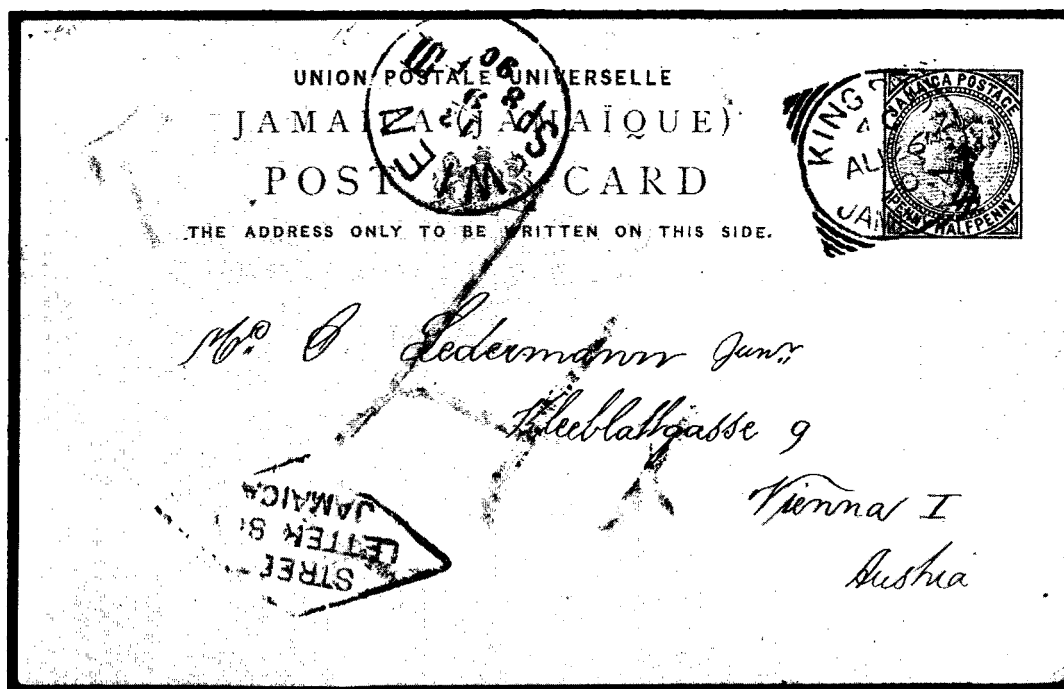 UNION POSTALE UNIVERSELLE
JAMAICA (JAMAÏQUE)
POST CARD
THE ADDRESS ONLY TO BE WRITTEN ON THIS SIDE.
WIEN
JAMAICA POSTAGE
PENNY HALFPENNY
Mr. Ledermann Junr
Kleeblattgasse 9
Vienna I
Austria
JAMAICA
LETTER